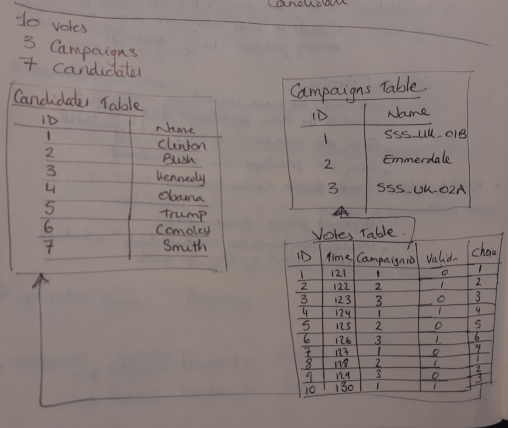 Candidate
10 Votes
3 Campaigns
7 Candidates
Candidates Table
ID Name
1 Clinton
2 Bush
3 Kennedy
4 Obama
5 Trump
6 Comoley
7 Smith
Campaigns Table
ID Name
1 SSS_UK_01B
2 Emmerdale
3 SSS_UK_02A
Votes Table
ID Time CampaignID Validn Choice
1 121 1 0 1
2 122 2 1 2
3 123 3 0 3
4 124 1 1 4
5 125 2 0 5
6 126 3 1 6
7 127 1 0 7
8 128 2 1 1
9 129 3 0 2
10 130 1 1 3